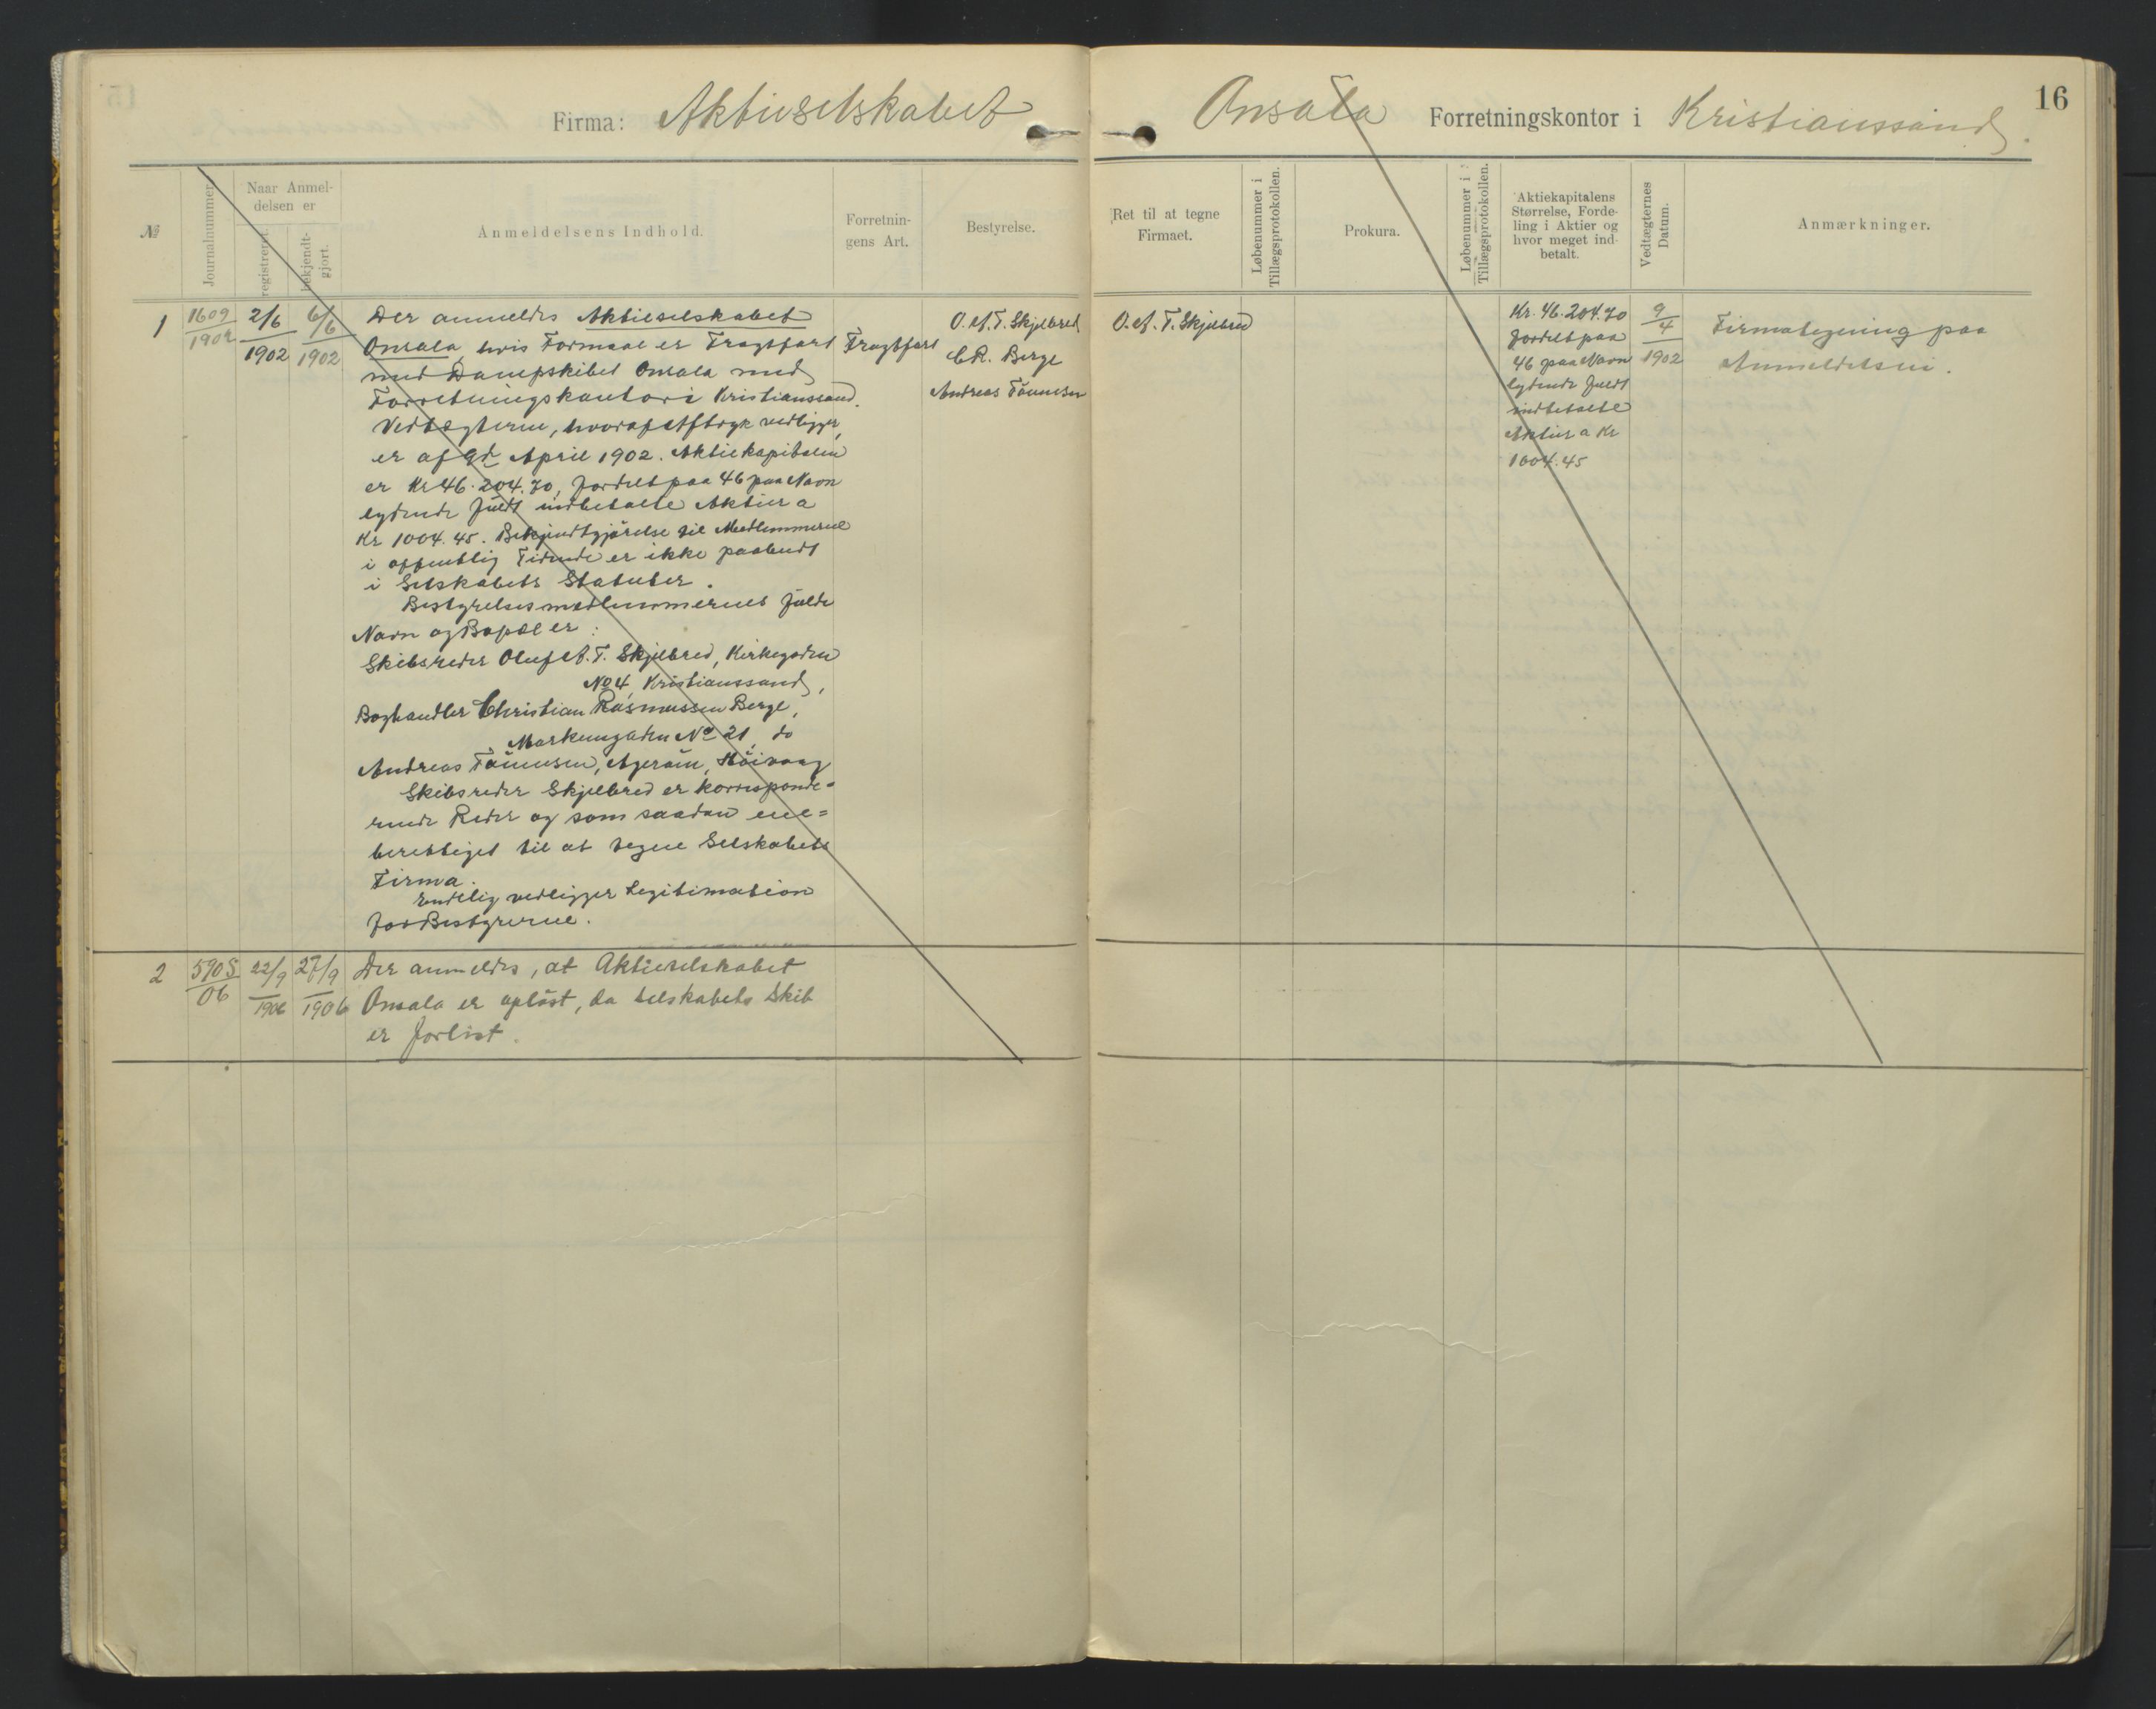 16
Firma: Aktieselskabet Onsala Forretningskontor i Kristianssand.
№
Journalnummer.
Naar Anmel-
delsen er
registreret.
bekjendt-
gjort.
Anmeldelsens Indhold.
Forretnin-
gens Art.
Bestyrelse.
Ret til at tegne
Firmaet.
Løbenummer i
Tillægsprotokollen.
Prokura.
Løbenummer i
Tillægsprotokollen.
Aktiekapitalens
Størrelse, Forde-
ling i Aktier og
hvor meget ind-
betalt.
Vedtægternes
Datum.
Anmærkninger.
1
1609
1902
2/6
1902
6/6
1902
Der anmeldes Aktieselskabet
Onsala, hvis Formaal er Fragtfart
med Dampskibet Onsala med
Forretningskontor i Kristianssand.
Vedtægterne, hvoraf Aftryk vedligger,
er af 9de April 1902. Aktiekapitalen
er Kr 46.204.70, fordelt paa 46 paa Navn
lydende fuldt indbetalte Aktier a
Kr 1004.45. Bekjendtgjörelse til Medlemmerne
i offentlig Tidende er ikke paabudt
i Selskabets Statuter.
Bestyrelsesmedlemmernes fulde
Navn og Bopæl er:
Skibsreder Oluf A. T. Skjelbred, Kirkegaden
No 4, Kristianssand,
Boghandler Christian Rasmussen Berge,
Markensgaden No 21, do
Andreas Tönnesen, Ageröen, Höivaag
Skibsreder Skjelbred er korresponde=
rende Reder og som saadan ene=
berettiget til at tegne Selskabets
Firma.
Endelig vedligger Legitimation
for Bestyrerne.
Fragtfart
O. A. T. Skjelbred
C. R. Berge
Andreas Tönnesen
O. A. T. Skjelbred
Kr. 46.204.70
fordelt paa
46 paa Navn
lydende fuldt
indbetalte
Aktier a Kr
1004.45
9
4
1902
Firmategning paa
Anmeldelsen.
2
5905
06
22/9
1906
27/9
1906
Der anmeldes, at Aktieselskabet
Onsala er oplöst, da selskabets Skib
er forlist.